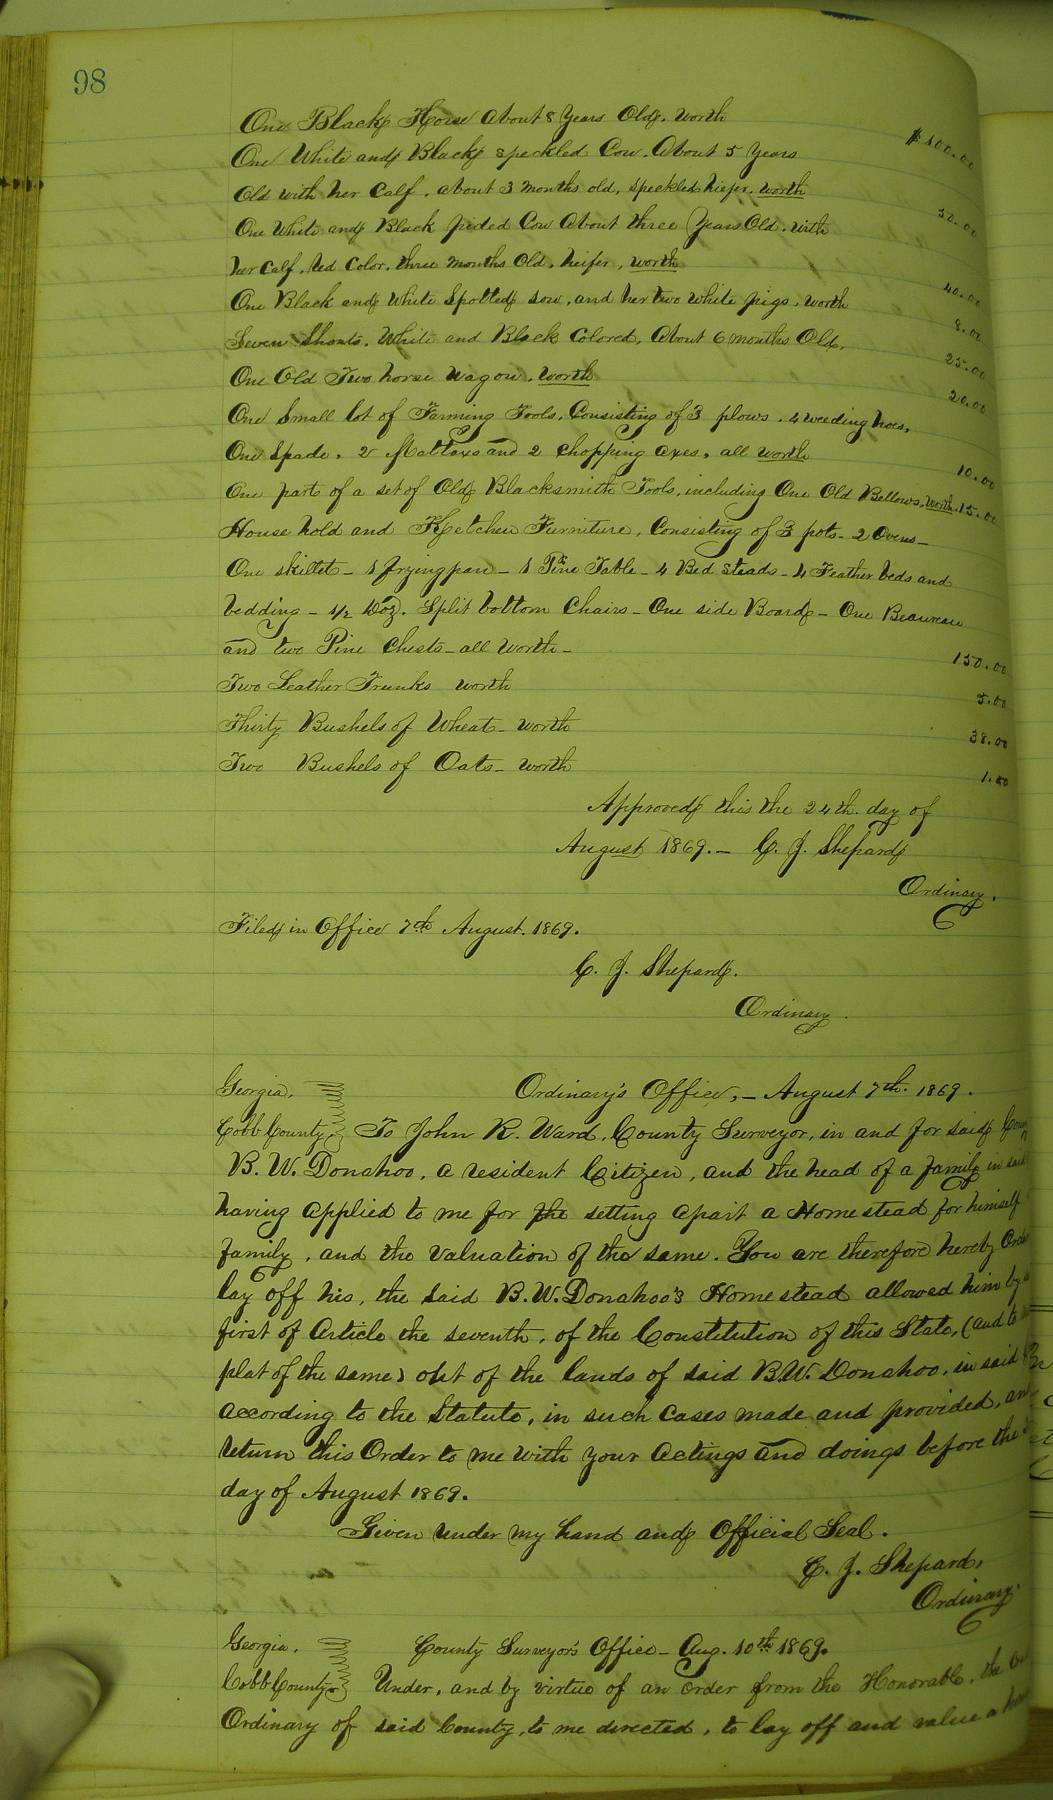 98
One Black Horse about 8 Years Old, worth $100.00
One White and Black speckled Cow. About 5 Years
Old with her Calf. about 3 months old, speckled hiefer. worth 50.00
One White and Black pided Cow About three Years Old. with
her Calf. Red Color. three months Old. heifer, worth 40.00
One Black and White Spotted sow, and her two white pigs. worth 8.00
Seven Shoats. White and Black Colored, About 6 months Old. 25.00
One Old Two horse Wagon. worth 20.00
One Small lot of Farming Tools. Consisting of 3 plows. 4 weeding hoes,
One Spade. 2 Mattoxs and 2 chopping axes. all worth 10.00
One parts of a set of Old Blacksmith Tools, including One Old Bellows. worth. 15.00
House hold and Ketchen Furniture, Consisting of 3 pots - 2 Ovens -
One skillet - 1 frying pan - 1 Pine Table - 4 Bed Steads - 4 Feather beds and
bedding - 1/2 Doz. Split bottom Chairs - One side Board - One Beaureau
and two Pine Chests - all worth - 150.00
Two Leather Trunks worth 5.00
Thirty Bushels of Wheat - worth 38.00
Two Bushels of Oats - worth 1.00
Approved this the 24th. day of
August 1869. - C. J. Shepard
Ordinary.
Filed in Office 7th August. 1869.
C. J. Shepard.
Ordinary.
Georgia. Ordinary's Office, - August 7th. 1869.
Cobb County To John R. Ward, County Surveyor, in and for said
B. W. Donahoo, a resident Citizen, and the head of a family in said
having applied to me for the setting apart a Homestead for himself
family, and the valuation of the same. You are therefore hereby
lay off his, the said B. W. Donahoo's Homestead allowed him by
first of Article the seventh, of the Constitution of this State, (and to
plat of the same) out of the lands of said B. W. Donahoo, in said
according to the Statute, in such cases made and provided,
return this Order to me with your actings and doings before the
day of August 1869.
Given under my hand and Official Seal.
C. J. Shepard,
Ordinary.
Georgia. County Surveyor's Office - Aug. 10th 1869.
Cobb County Under, and by virtue of an order from the Honorable, the
Ordinary of said County, to me directed, to lay off and value a